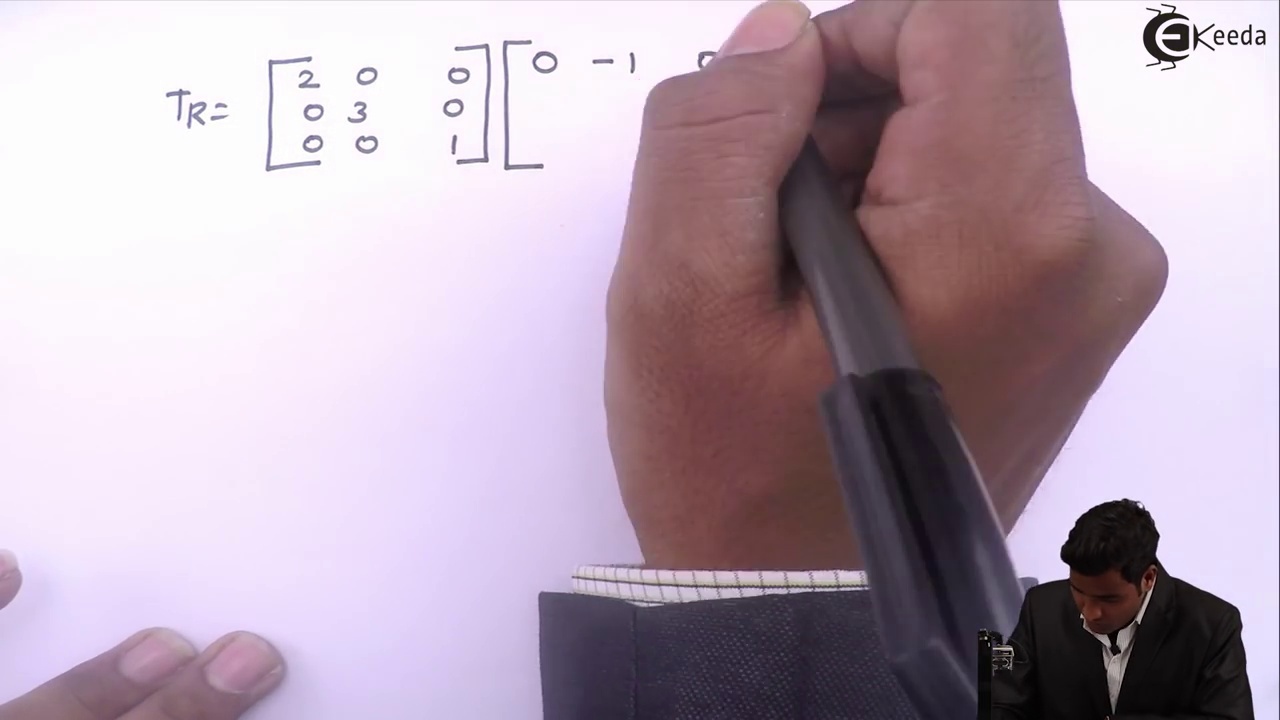 EKeeda
T_R = [ 2 0 0 ] [ 0 -1 0
0 3 0
0 0 1